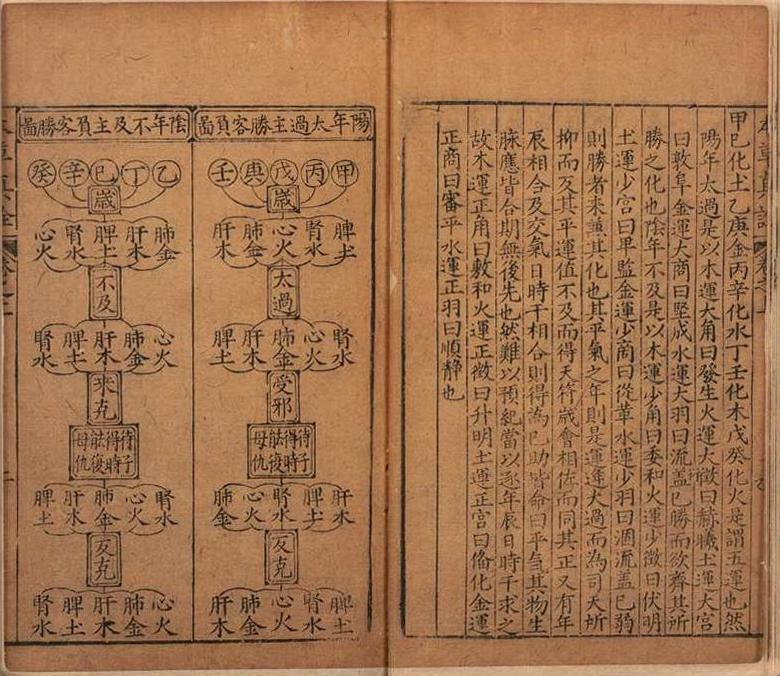 甲巳化土乙庚金丙辛化水丁壬化木戊癸化火是謂五運也然
陽年太過是以木運大角曰發生火運大徵曰赫曦土運大宮
曰敦阜金運大商曰堅成水運大羽曰流盖巳勝而欲齊其所
勝之化也陰年不及是以木運少角曰委和火運少徵曰伏明
土運少宮曰𤰞監金運少商曰從革水運少羽曰涸流盖巳弱
則勝者來兼其化也其平氣之年則是運大過而為司天所
抑而反其平運值不及而得天符歲會相佐而同其正又有年
辰相合及交氣日時干相合則得為巳助皆命曰平氣其物生
脉應皆合期無後先也然難以預紀當以逐年辰日時干求之
故木運正角曰敷和火運正徵曰升明土運正宮曰俻化金運
正商曰審平水運正羽曰順静也
陽年太過主勝客負圖
甲丙戊庚壬
歲
脾土 腎水 心火 肺金 肝木
太過
腎水 心火 肺金 肝木 脾土
受邪
待子得時能復母仇
肝木 脾土 腎水 心火 肺金
反克
脾土 腎水 心火 肺金 肝木
陰年不及主負客勝圖
乙丁巳辛癸
歲
肺金 肝木 脾土 腎水 心火
不及
心火 肺金 肝木 脾土 腎水
來克
待子得時能復母仇
腎水 心火 肺金 肝木 脾土
反克
心火 肺金 肝木 脾土 腎水